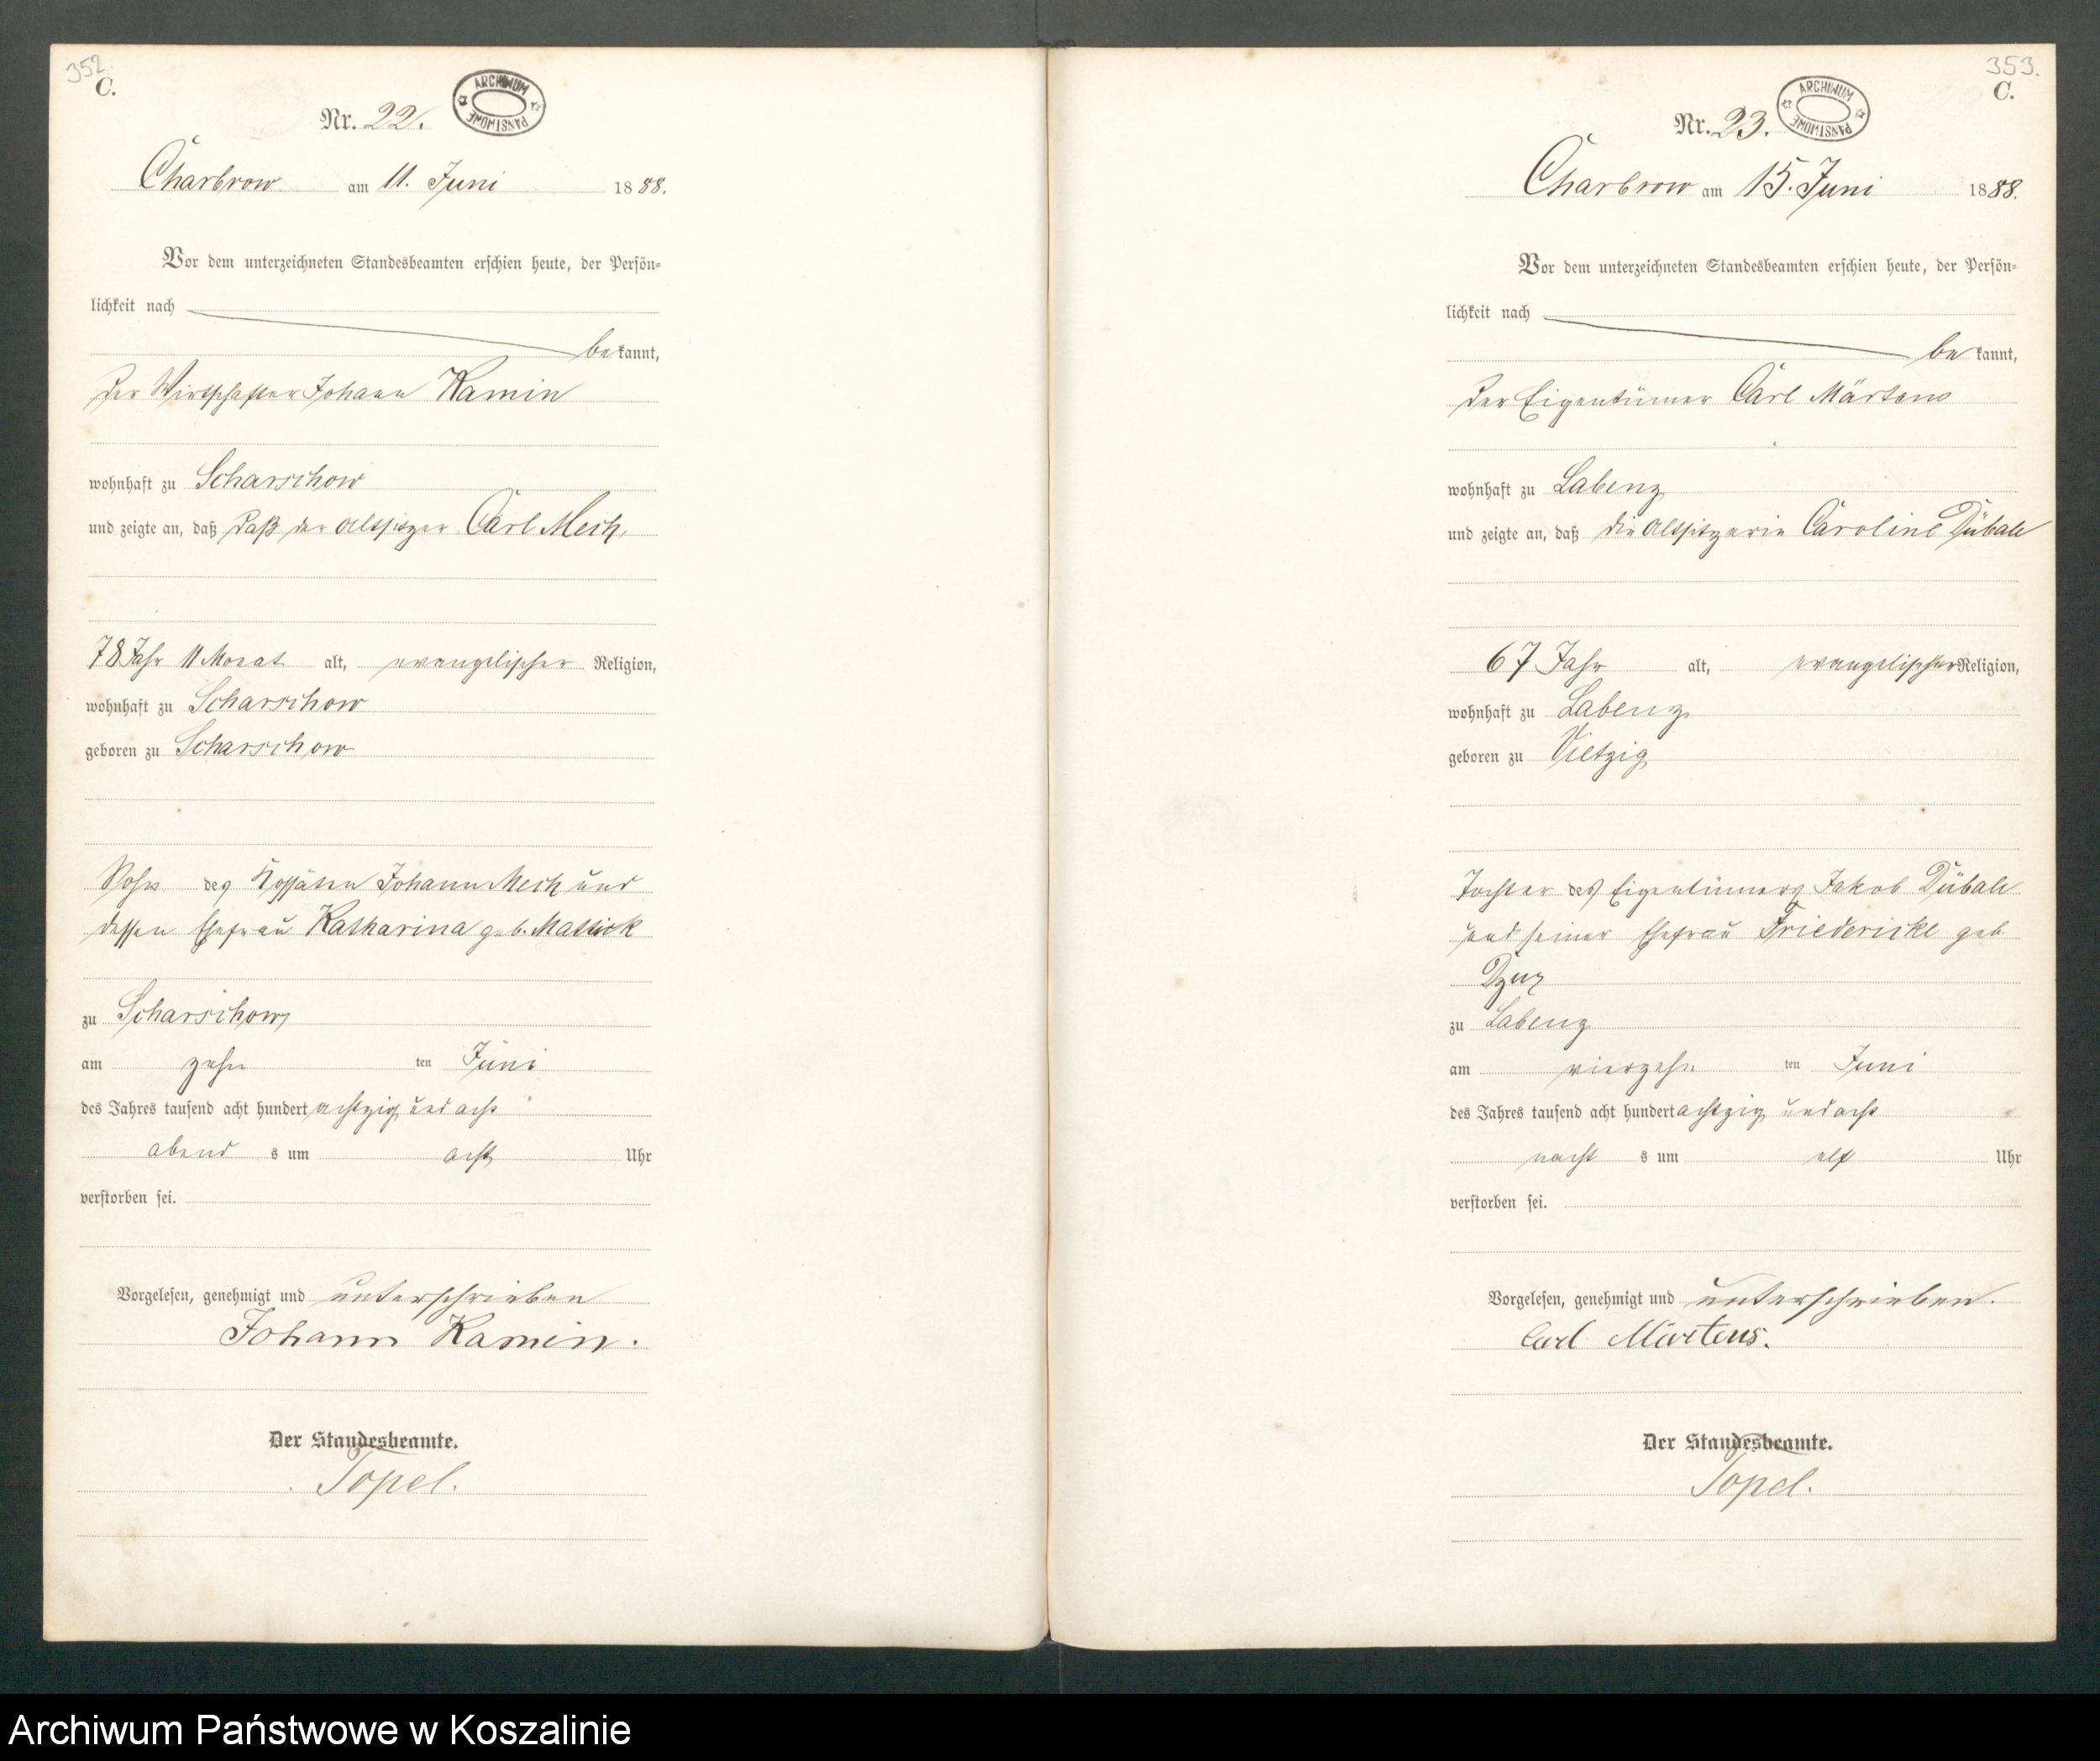 352.
C.
ARCHIWUM PAŃSTWOWE
Nr. 22.
Charbrow am 11. Juni 1888.
Vor dem unterzeichneten Standesbeamten erschien heute, der Persön-
lichkeit nach
bekannt,
der Wirthschafter Johann Kamin
wohnhaft zu Scharschow
und zeigte an, daß daß der Altsitzer Carl Mech,
78 Jahr 11 Monat alt, evangelischer Religion,
wohnhaft zu Scharschow
geboren zu Scharschow
Sohn des Kossäten Johann Mech und
dessen Ehefrau Katharina geb. Mallick
zu Scharschow,
am zehn ten Juni
des Jahres tausend acht hundert achtzig und acht
abend s um acht Uhr
verstorben sei.
Vorgelesen, genehmigt und unterschrieben
Johann Kamin.
Der Standesbeamte.
Topel.
353.
C.
ARCHIWUM PAŃSTWOWE
Nr. 23.
Charbrow am 15. Juni 1888.
Vor dem unterzeichneten Standesbeamten erschien heute, der Persön-
lichkeit nach
bekannt,
der Eigentümer Carl Märtens
wohnhaft zu Labenz
und zeigte an, daß die Altsitzerin Caroline Dübale
67 Jahr alt, evangelischer Religion,
wohnhaft zu Labenz
geboren zu Vietzig
Tochter des Eigentümers Jakob Dübale
und seiner Ehefrau Friedericke geb.
zu Labenz
am vierzehn ten Juni
des Jahres tausend acht hundert achtzig und acht
nacht s um elf Uhr
verstorben sei.
Vorgelesen, genehmigt und unterschrieben.
Carl Märtens.
Der Standesbeamte.
Topel.
Archiwum Państwowe w Koszalinie